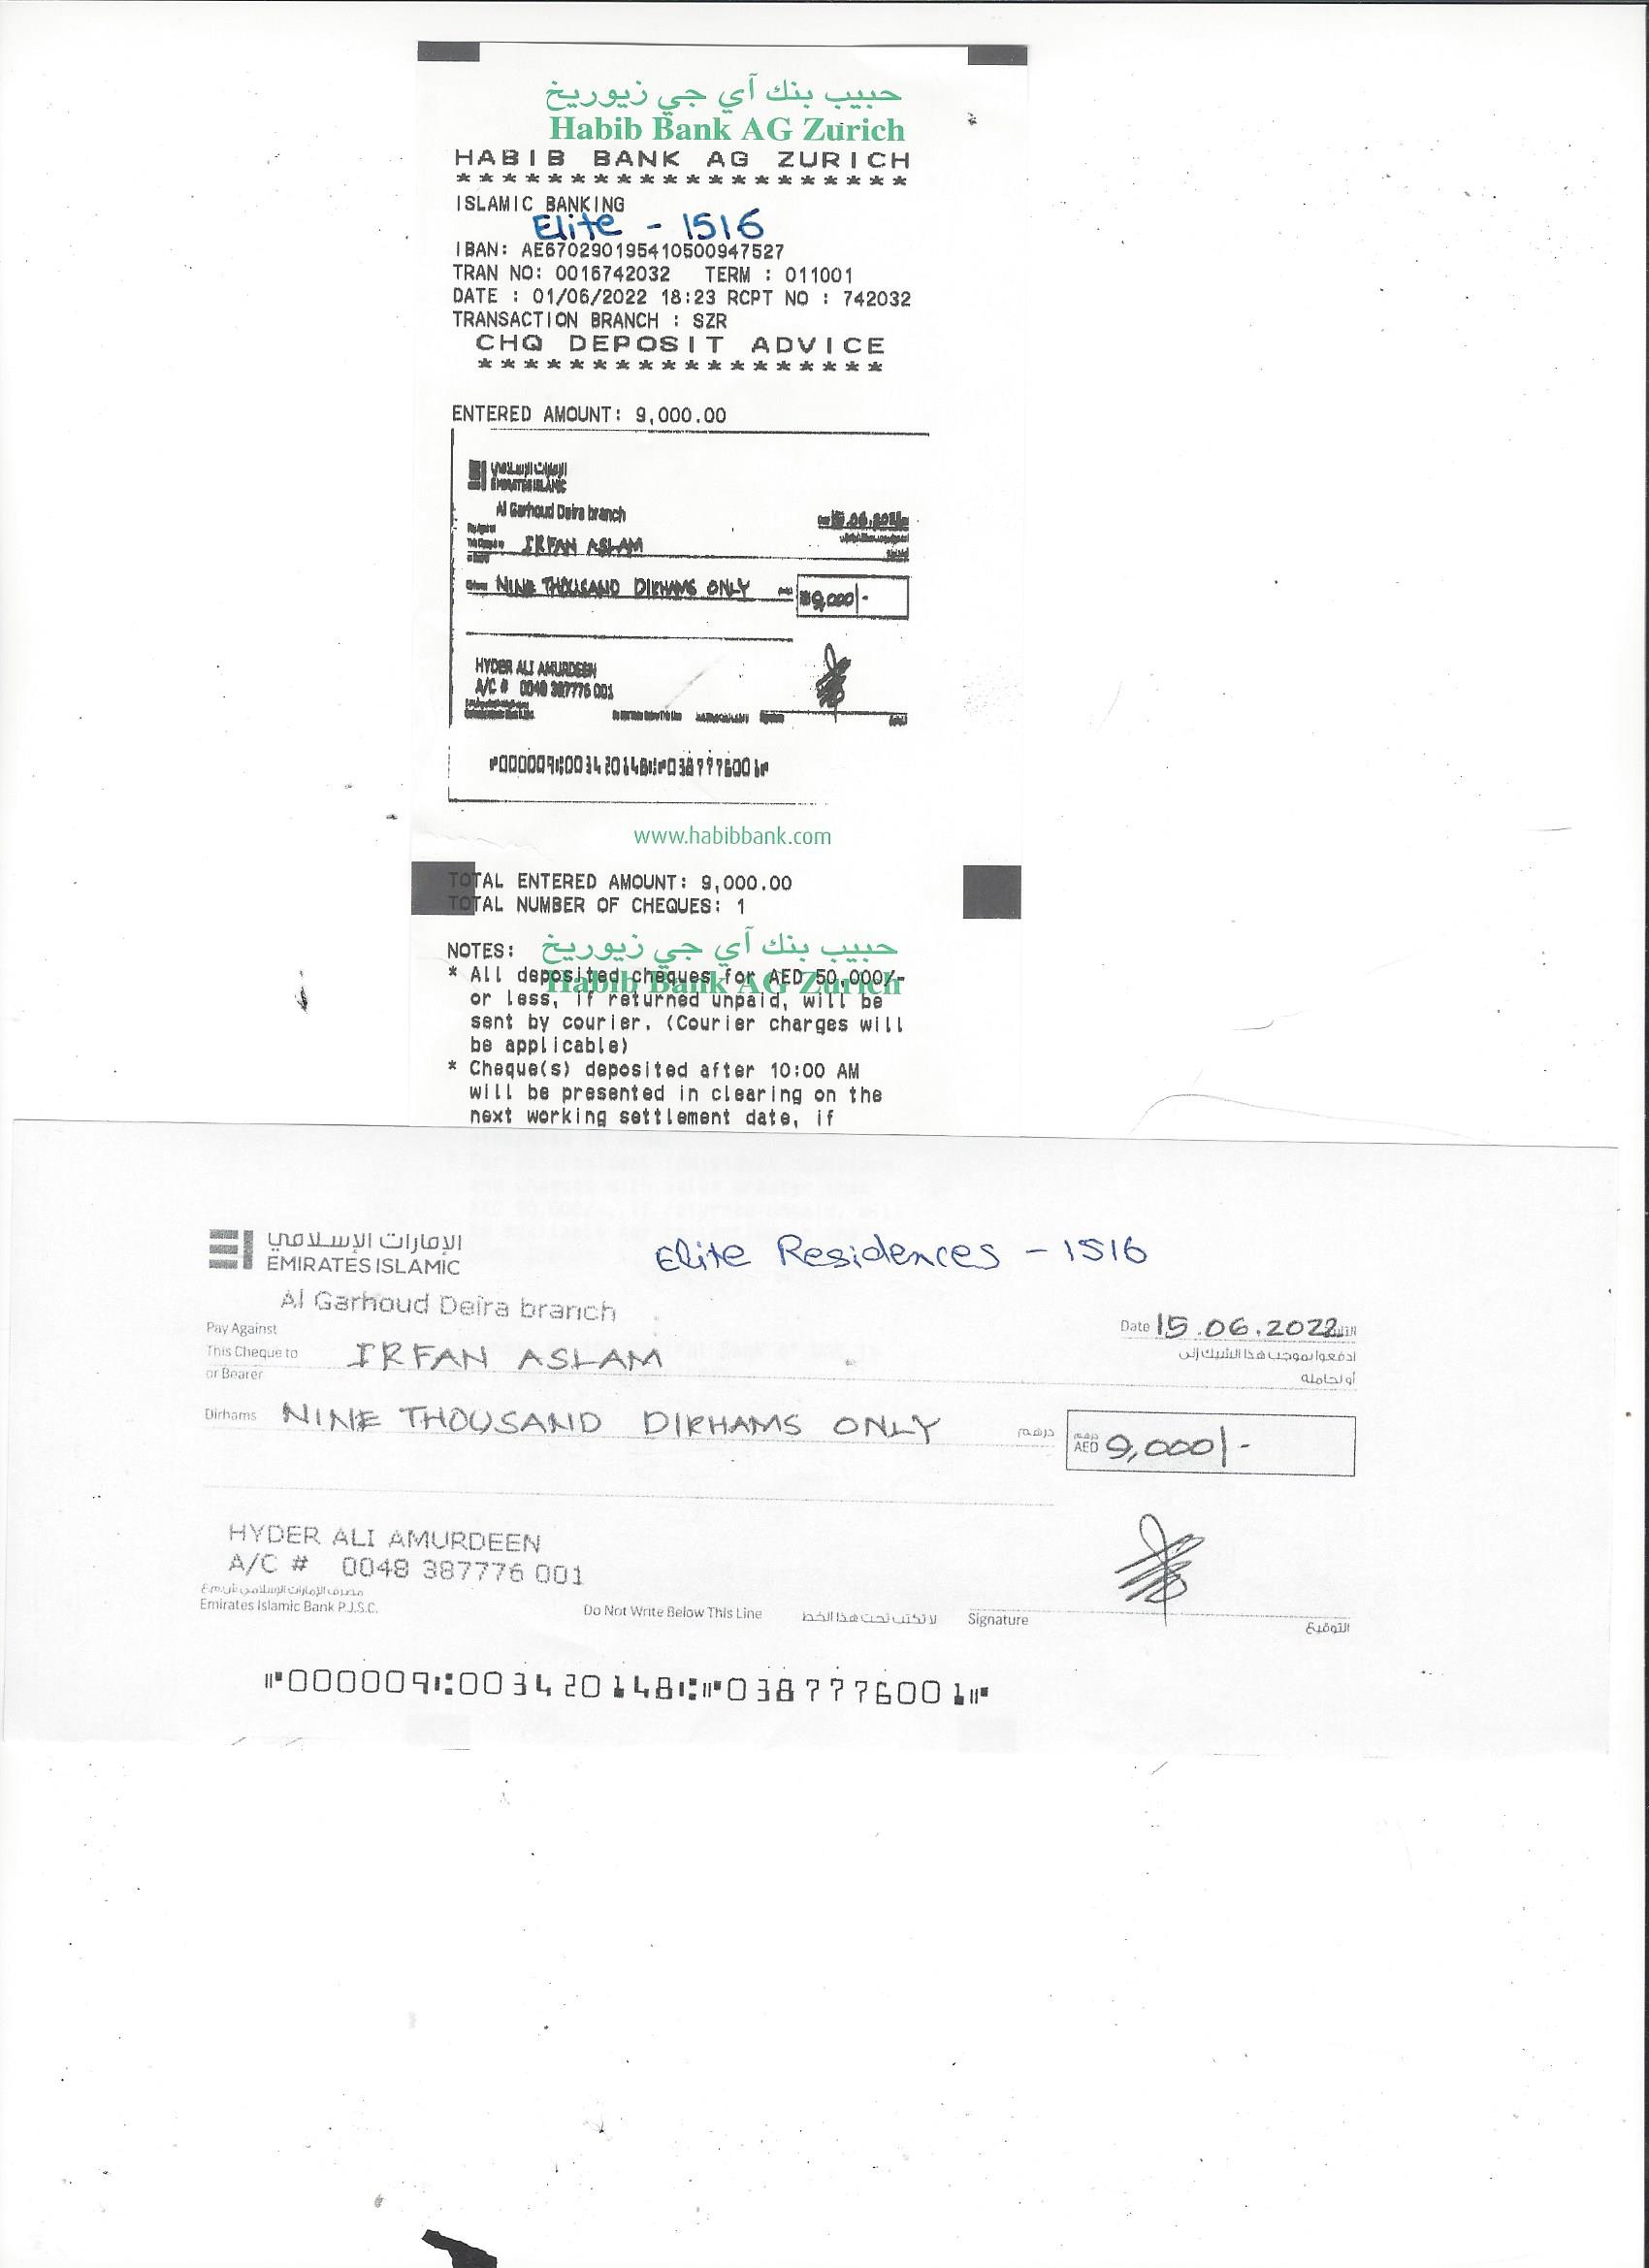 حبيب بنك آي جي زيوريخ
Habib Bank AG Zurich
HABIB BANK AG ZURICH
********************
ISLAMIC BANKING
Elite - 1516
IBAN: AE670290195410500947527
TRAN NO: 0016742032 TERM : 011001
DATE : 01/06/2022 18:23 RCPT NO : 742032
TRANSACTION BRANCH : SZR
CHQ DEPOSIT ADVICE
******************
ENTERED AMOUNT: 9,000.00
الإمارات الإسلامي
EMIRATES ISLAMIC
Al Garhoud Deira branch
IRFAN ASLAM
NINE THOUSAND DIRHAMS ONLY 9,000/-
HYDER ALI AMURDEEN
A/C # 0048 387776 001
⑈000009⑆003420148⑆⑈0387776001⑈
www.habibbank.com
TOTAL ENTERED AMOUNT: 9,000.00
TOTAL NUMBER OF CHEQUES: 1
حبيب بنك آي جي زيوريخ
Habib Bank AG Zurich
NOTES:
* All deposited cheques for AED 50,000/-
or less, if returned unpaid, will be
sent by courier. (Courier charges will
be applicable)
* Cheque(s) deposited after 10:00 AM
will be presented in clearing on the
next working settlement date, if
الإمارات الإسلامي
EMIRATES ISLAMIC
Elite Residences - 1516
Al Garhoud Deira branch
Date 15.06.2022 التاريخ
Pay Against
This Cheque to IRFAN ASLAM ادفعوا بموجب هذا الشيك إلى
or Bearer أو لحامله
Dirhams NINE THOUSAND DIRHAMS ONLY درهم
درهم
AED 9,000/-
HYDER ALI AMURDEEN
A/C # 0048 387776 001
مصرف الإمارات الإسلامي ش.م.ع
Emirates Islamic Bank P.J.S.C.
Do Not Write Below This Line لا تكتب تحت هذا الخط Signature التوقيع
⑈000009⑆003420148⑆⑈0387776001⑈